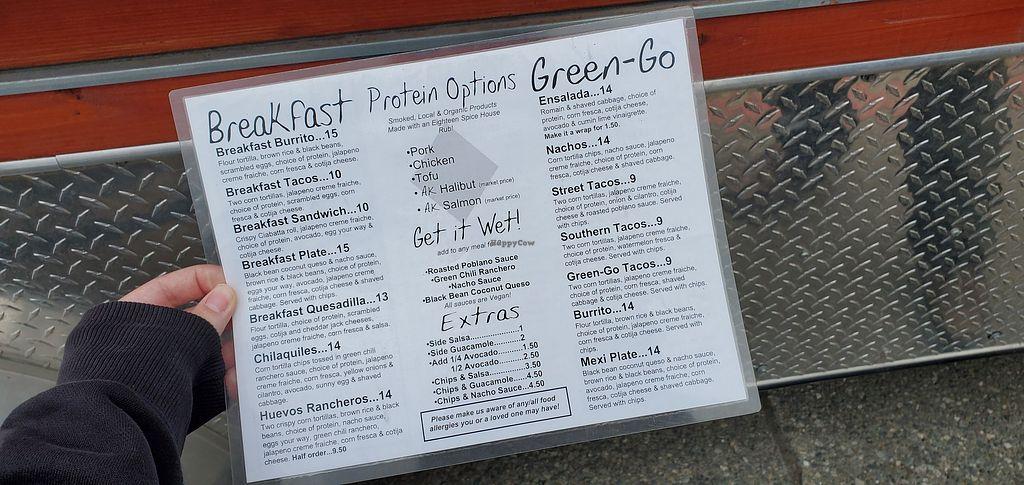 Breakfast
Breakfast Burrito...15
Flour tortilla, brown rice & black beans,
scrambled eggs, choice of protein, jalapeno
creme fraiche, corn fresca & cotija cheese.
Breakfast Tacos...10
Two corn tortillas, jalapeno creme fraiche,
choice of protein, scrambled eggs, corn
fresca & cotija cheese.
Breakfast Sandwich...10
Crispy Ciabatta roll, jalapeno creme fraiche,
choice of protein, avocado, egg your way &
cotija cheese.
Breakfast Plate...15
Black bean coconut queso & nacho sauce,
brown rice & black beans, choice of protein,
eggs your way, avocado, jalapeno creme
fraiche, corn fresca, cotija cheese & shaved
cabbage. Served with chips.
Breakfast Quesadilla...13
Flour tortilla, choice of protein, scrambled
eggs, cotija and cheddar jack cheeses,
jalapeno creme fraiche, corn fresca & salsa.
Chilaquiles...14
Corn tortilla chips tossed in green chili
ranchero sauce, choice of protein, jalapeno
creme fraiche, corn fresca, yellow onions &
cilantro, avocado, sunny egg & shaved
cabbage.
Huevos Rancheros...14
Two crispy corn tortillas, brown rice & black
beans, choice of protein, nacho sauce,
eggs your way, green chili ranchero,
jalapeno creme fraiche, corn fresca & cotija
cheese. Half order...9.50
Protein Options
Smoked, Local & Organic Products
Made with an Eighteen Spice House
Rub!
•Pork
•Chicken
•Tofu
•AK Halibut (market price)
•AK Salmon (market price)
Get it Wet!
add to any meal f
HappyCow
•Roasted Poblano Sauce
•Green Chili Ranchero
•Nacho Sauce
•Black Bean Coconut Queso
All sauces are Vegan!
Extras
•Side Salsa....................1
•Side Guacamole...........2
•Add 1/4 Avocado.......1.50
1/2 Avocado.......2.50
•Chips & Salsa...........3.50
•Chips & Guacamole...4.50
•Chips & Nacho Sauce...4.50
Please make us aware of any/all food
allergies you or a loved one may have!
Green-Go
Ensalada...14
Romain & shaved cabbage, choice of
protein, corn fresca, cotija cheese,
avocado & cumin lime vinaigrette.
Make it a wrap for 1.50.
Nachos...14
Corn tortilla chips, nacho sauce, jalapeno
creme fraiche, choice of protein, corn
fresca, cotija cheese & shaved cabbage.
Street Tacos...9
Two corn tortillas, jalapeno creme fraiche,
choice of protein, onion & cilantro, cotija
cheese & roasted poblano sauce. Served
with chips.
Southern Tacos...9
Two corn tortillas, jalapeno creme fraiche,
choice of protein, watermelon fresca &
cotija cheese. Served with chips.
Green-Go Tacos...9
Two corn tortillas, jalapeno creme fraiche,
choice of protein, corn fresca, shaved
cabbage & cotija cheese. Served with chips.
Burrito...14
Flour tortilla, brown rice & black beans,
choice of protein, jalapeno creme fraiche,
corn fresca & cotija cheese. Served with
chips.
Mexi Plate...14
Black bean coconut queso & nacho sauce,
brown rice & black beans, choice of protein,
avocado, jalapeno creme fraiche, corn
fresca, cotija cheese & shaved cabbage.
Served with chips.